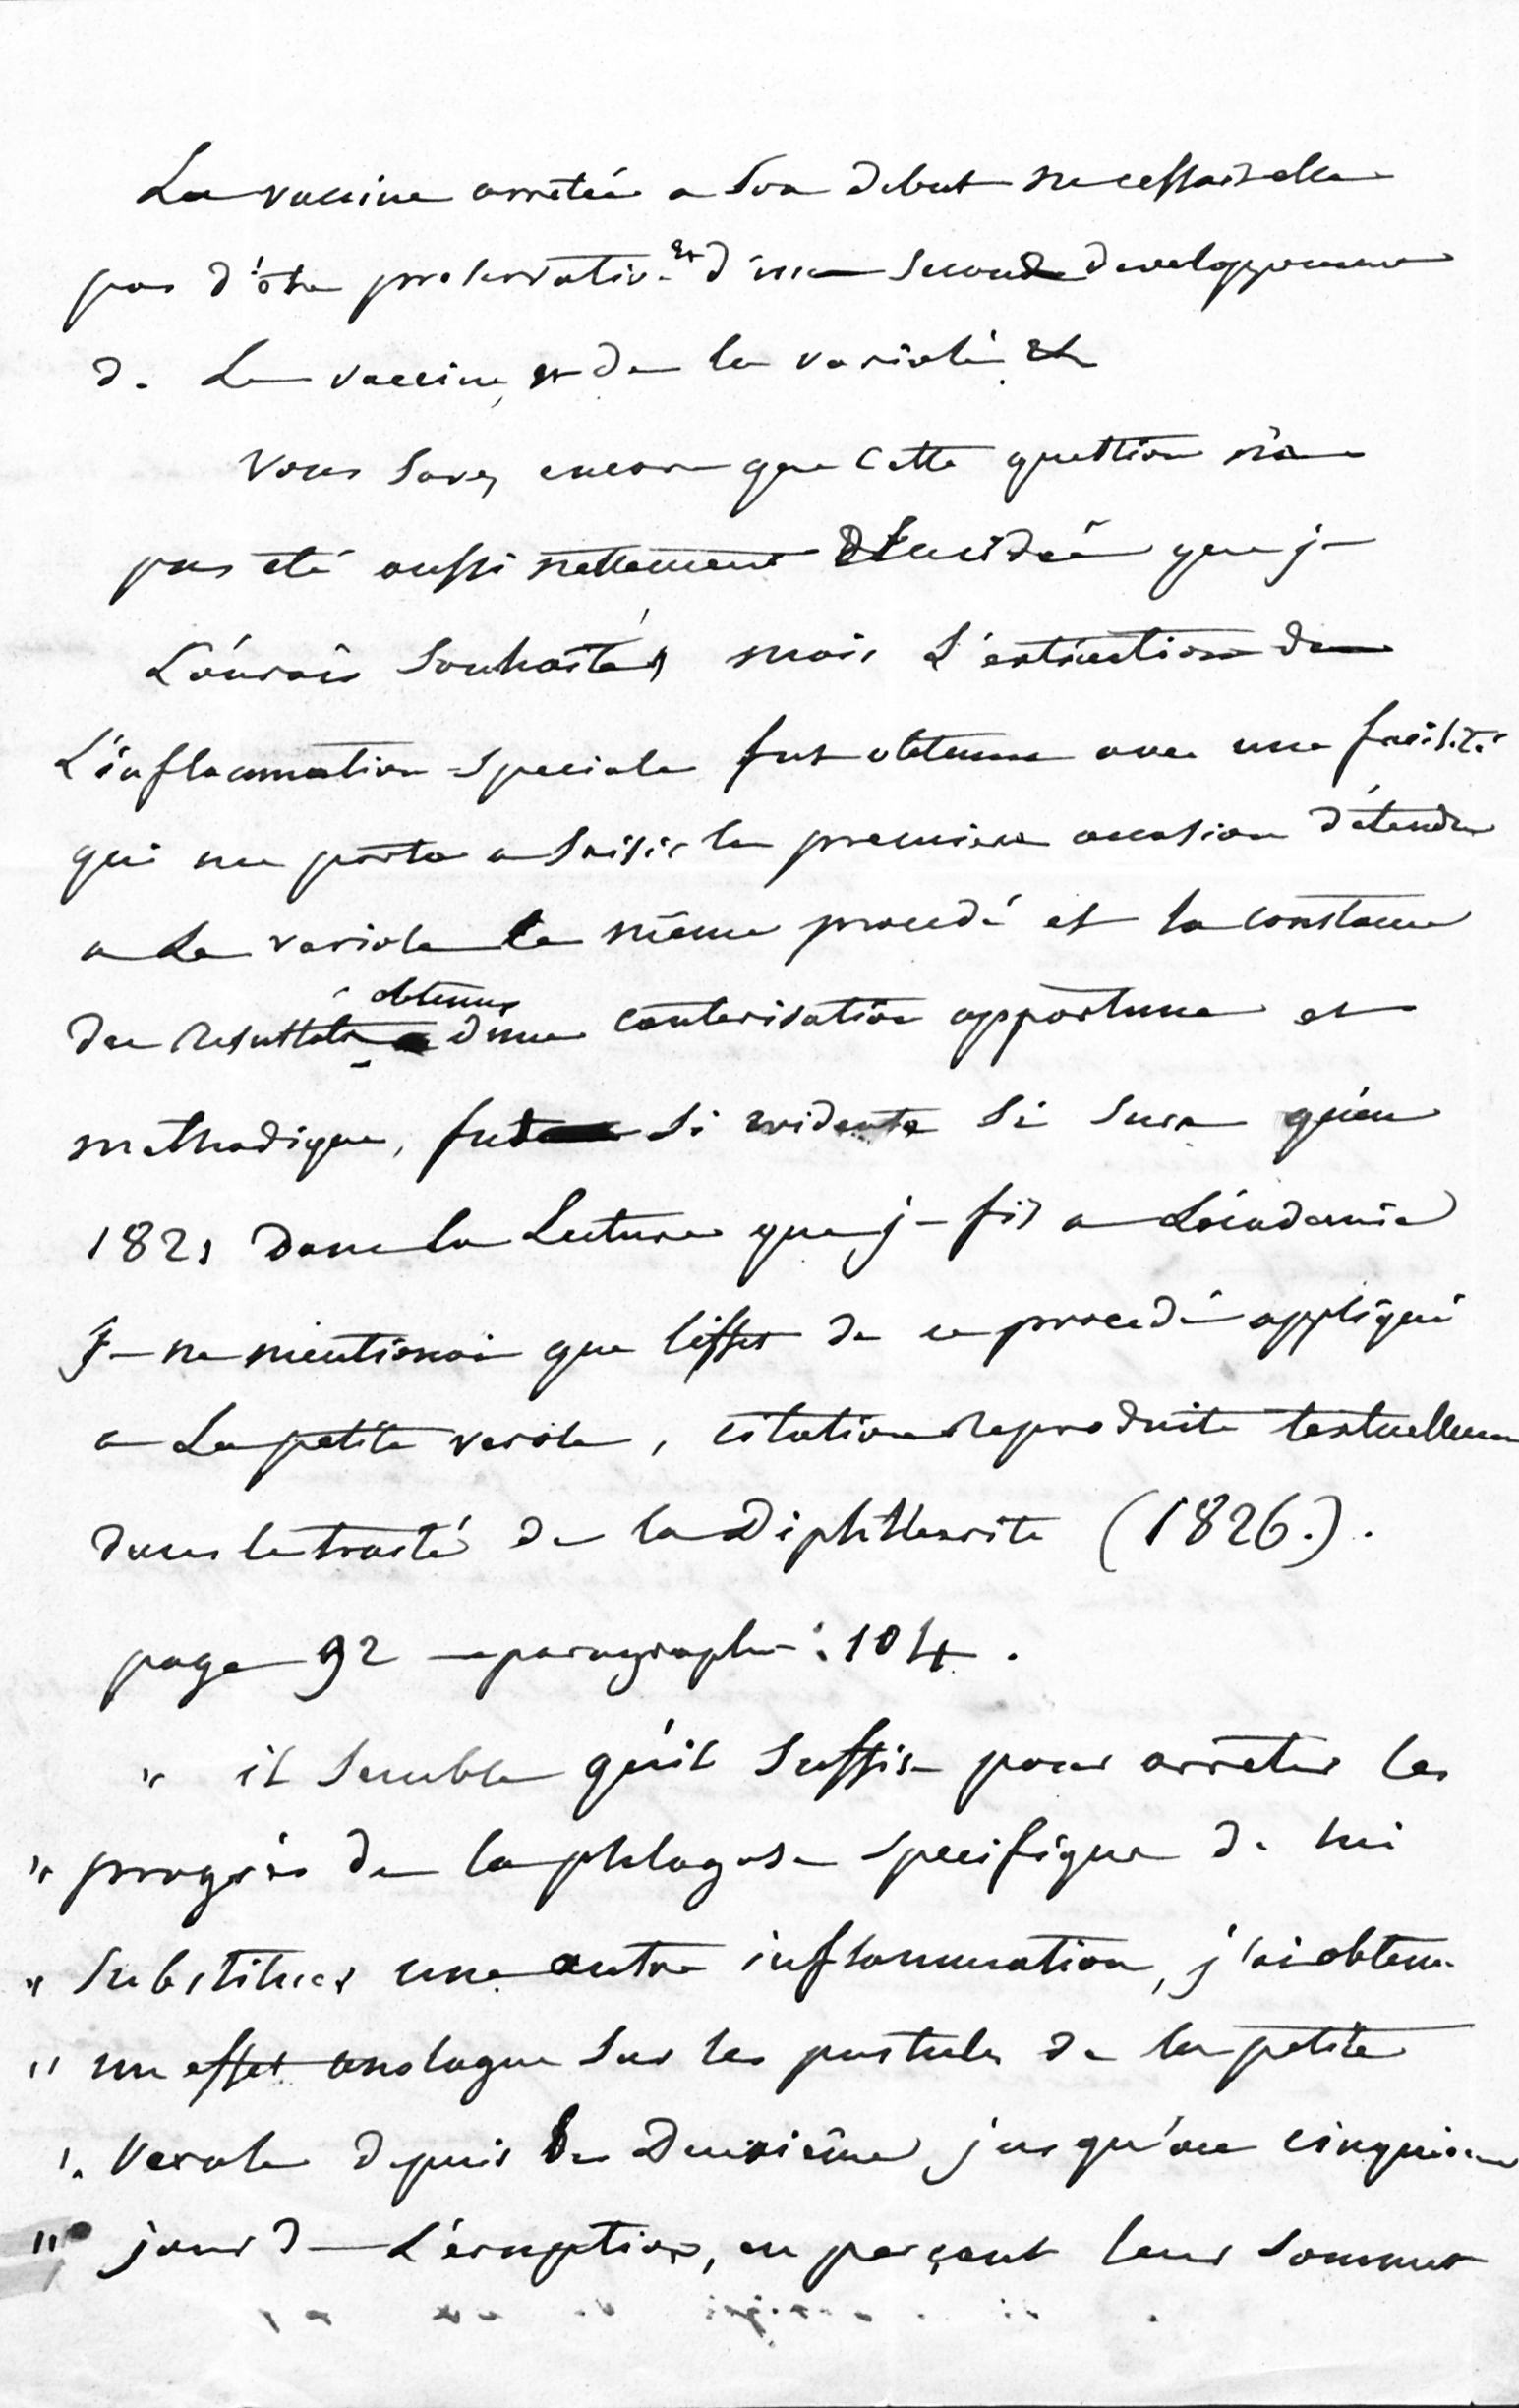 La vaccine arretée a son debut ne cessait elle
pas d'être preservative et d'un second developpement
de La vaccine, et de la variole. &
Vous savez encore que cette question n'a
pas eté aussi nettement Elucidée que je
L'aurais souhaité, mais L'extinction de
L'inflammation speciale fut obtenue avec une facilité
qui me porta a saisir la premiere occasion d'étendre
a La variole le même procedé et la constance
des resultats obtenus d'une cauterisation opportune et
methodique, fut si evidente si sure qu'en
1821 Dans la Lecture que je fis a L'académie
Je ne mentionai que l'effet de ce procedé appliqué
a La petite verole, citation reproduite textuellement
dans le traité de la Diphtherite (1826.).
page 92 paragraphe : 104.
" il semble qu'il suffise pour arreter les
" progrès de la phlogose specifique de lui
" substituer une autre inflammation, j'ai obtenu
" un effet analogue sur les pustules de la petite
" Verole depuis le Deuxième jusqu'au cinquieme
" jour de L'éruption, en perçant leur sommet